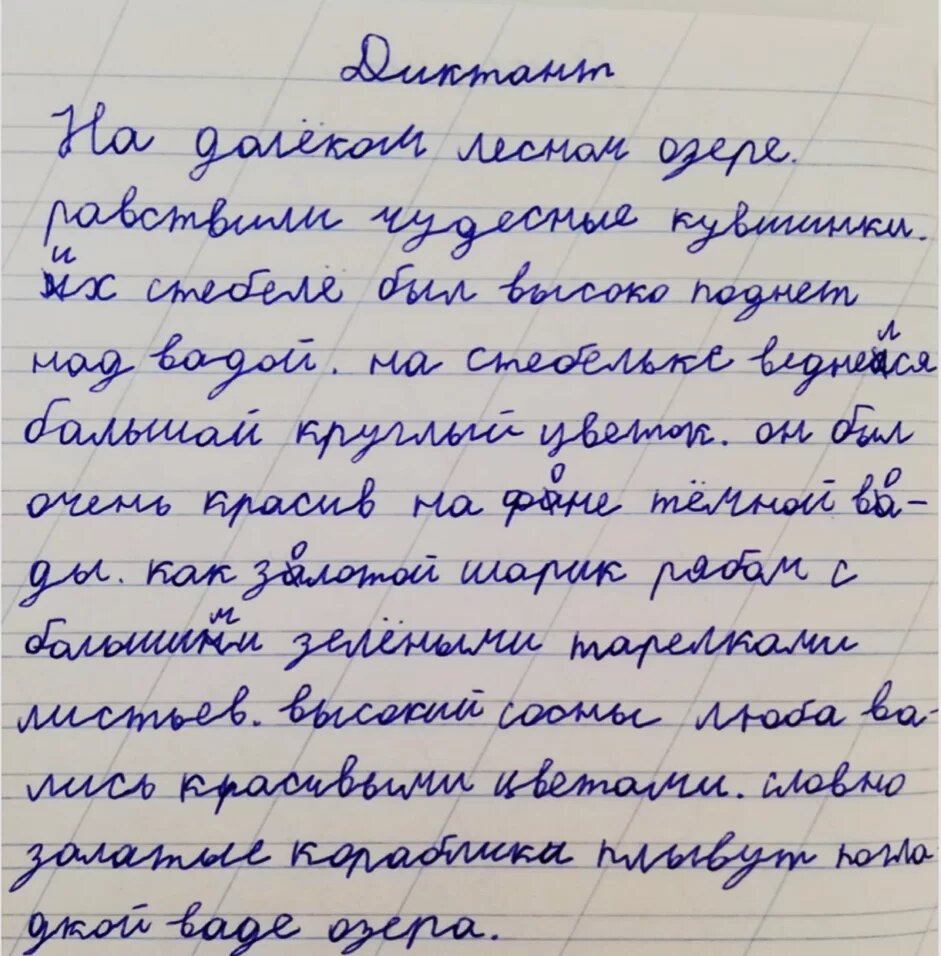 Диктант
На далёком лесном озере.
равствили чудесные кувшинки.
их стебелё был высоко поднет
над вадой. на стебельке веднелся
бальшай круглый цветок. он был
очень красив на фоне тёмной во-
ды. как золотой шарик рябам с
балышими зелёными тарелками
листьев. высокий сосны люба ва-
лись красивыми цветами. словно
залатые кораблики плывут погла
дкой ваде озера.